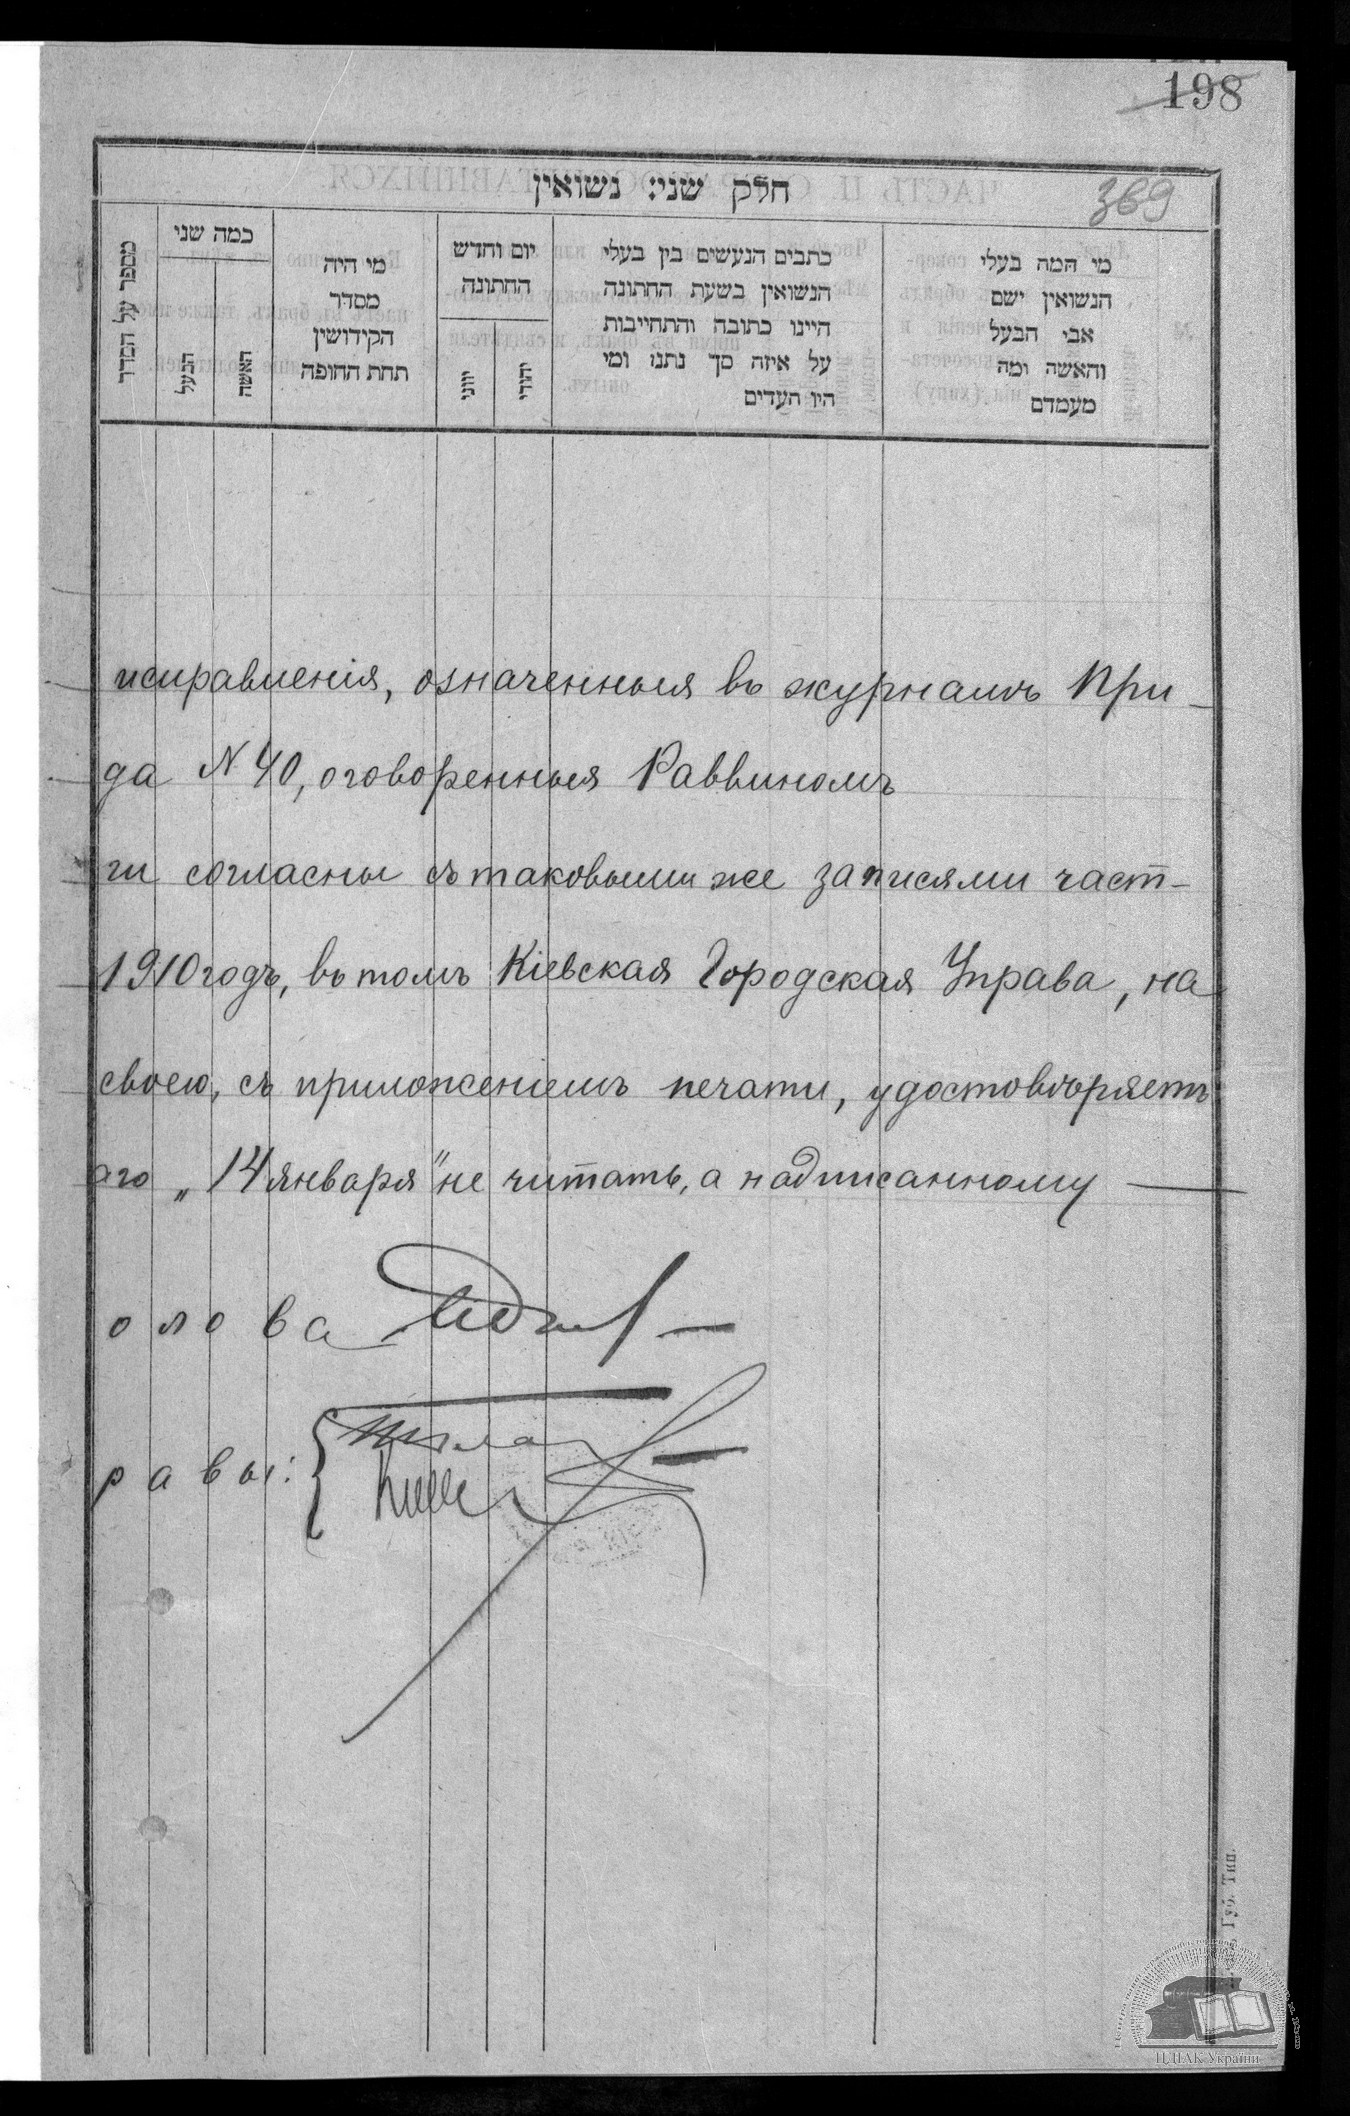 198
חלק שני: נשואין
369
מספר על הסדר
כמה שני
הבעל
האשה
מי היה
מסדר
הקידושין
תחת החופה
יום וחדש
החתונה
יווני
יהודי
כתבים הנעשים בין בעלי
הנשואין בשעת החתונה
היינו כתובה והתחייבות
על איזה סך נתנו ומי
היו העדים
מי המה בעלי
הנשואין ושם
אבי הבעל
והאשה ומה
מעמדם
исправленія, означенныя въ журналѣ При-
да № 40, оговоренныя Раввиномъ
ги согласны съ таковыми же записями част-
1910 годъ, въ томъ Кіевская Городская Управа, на
своею, съ приложеніемъ печати, удостовѣряетъ
аго „14 января" не читать, а надписанному —
олова
равы:
Губ. Тип.
ЦДІАК України